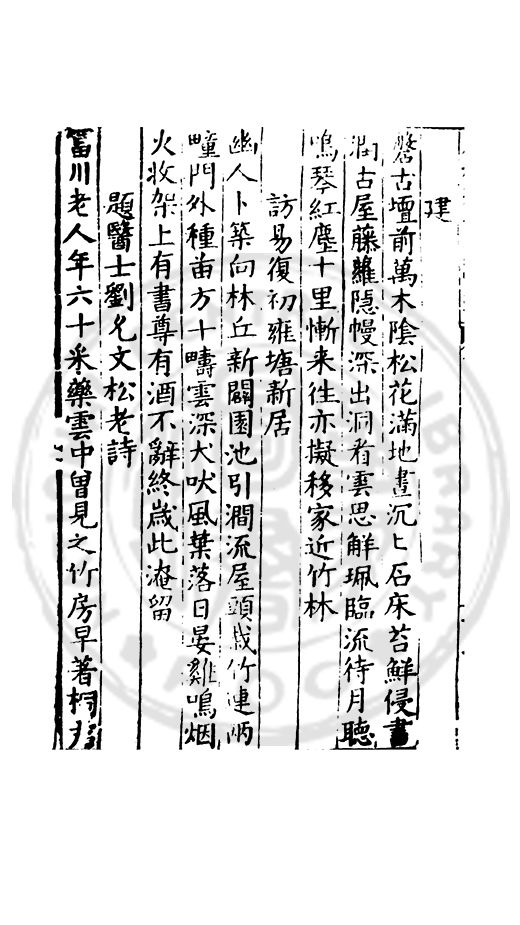 建
盤古壇前萬木陰松花滿地晝沉匕石床苔鮮侵書
潤古屋藤蘿隱幔深出洞看雲思解珮臨流待月聽
鳴琴紅塵十里慚来徃亦擬移家近竹林
訪易復初雍塘新居
幽人卜築向林丘新闢園池引澗流屋頭栽竹連兩
疃門外種苗方十疇雲深犬吠風葉落日晏雞鳴烟
火收架上有書尊有酒不辭終歲此淹留
題醫士劉允文松老詩
富川老人年六十采藥雲中曽見之竹房早著桐